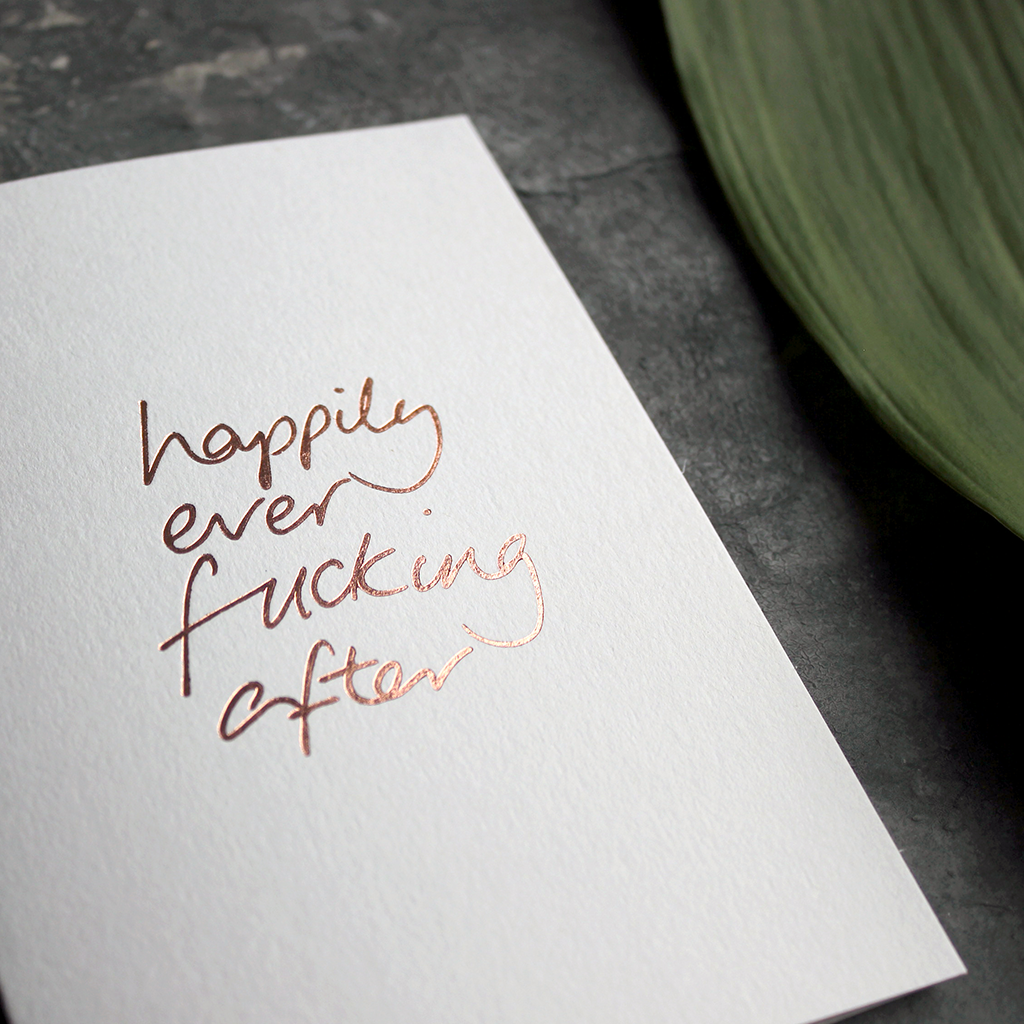 happily
ever
fucking
after